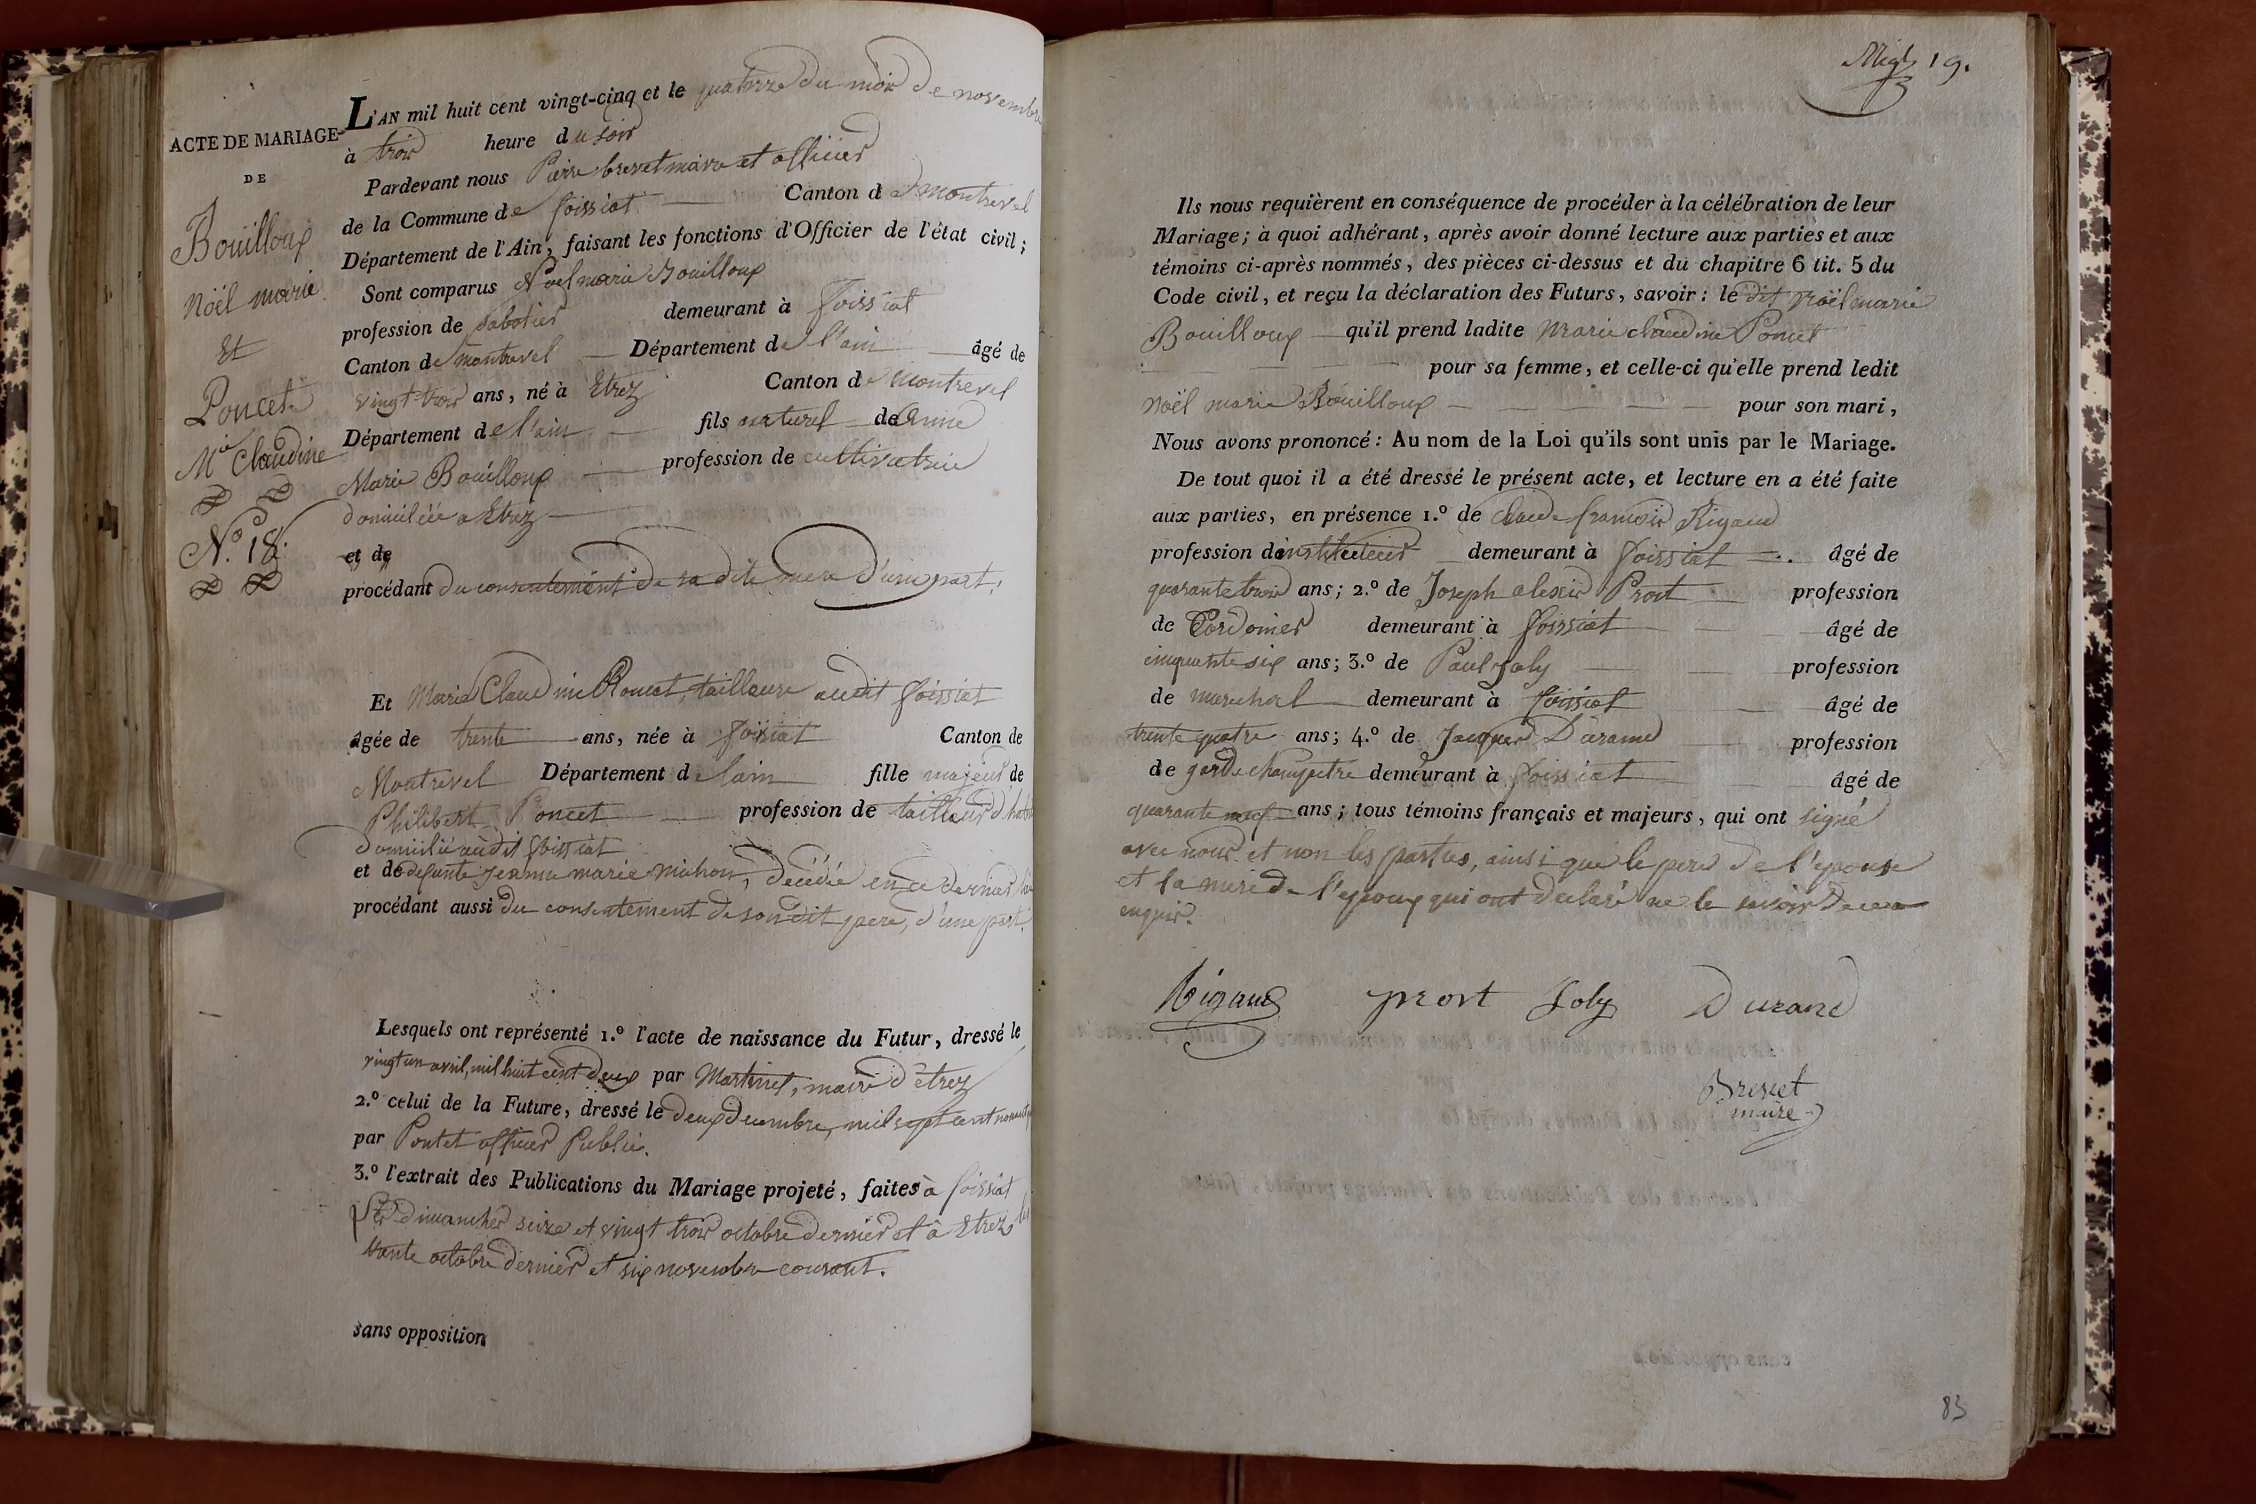 ACTE DE MARIAGE
DE
Bouilloux
Noël marie
Et
Poncet
Mie Claudine
N.º 18.
L'AN mil huit cent vingt-cinq et le quatorze du mois de novembre
à trois heure du soir
Pardevant nous Pierre brevet maire et officier
de la Commune de foissiat Canton de Montrevel
Département de l'Ain, faisant les fonctions d'Officier de l'état civil;
Sont comparus Noel marie Bouilloux
profession de sabotier demeurant à foissiat
Canton de montrevel Département de l'ain âgé de
vingt trois ans, né à Etrez Canton de montrevel
Département de l'ain fils naturel de Anne
Marie Bouilloux profession de cultivatrice
domiciliée a Etrez
et de
procédant du consentement de sa dite mere d'une part;
Et Marie Claudine Poncet, tailleure audit foissiat
âgée de trente ans, née à foissiat Canton de
Montrevel Département de lain fille majeure de
Philibert Poncet profession de tailleur d'habit
domicilié audit foissiat
et de defunte jeanne marie michon, décédée en ce dernier lieu
procédant aussi du consentement de son dit pere, d'une part.
Lesquels ont représenté 1.º l'acte de naissance du Futur, dressé le
vingt un avril, mil huit cent deux par Martinet, maire d'étrez
2.º celui de la Future, dressé le deux decembre, mil sept cent
par Pontet officier Public.
3.º l'extrait des Publications du Mariage projeté, faites à foissiat
les dimanches seize et vingt trois octobre dernier et à Etrez les
trente octobre dernier et six novembre courant.
sans opposition
19.
Ils nous requièrent en conséquence de procéder à la célébration de leur
Mariage; à quoi adhérant, après avoir donné lecture aux parties et aux
témoins ci-après nommés, des pièces ci-dessus et du chapitre 6 tit. 5 du
Code civil, et reçu la déclaration des Futurs, savoir: le dit Noël marie
Bouilloux qu'il prend ladite Marie claudine Poncet
pour sa femme, et celle-ci qu'elle prend ledit
Noël marie Bouilloux pour son mari,
Nous avons prononcé: Au nom de la Loi qu'ils sont unis par le Mariage.
De tout quoi il a été dressé le présent acte, et lecture en a été faite
aux parties, en présence 1.º de claude françois Rigaud
profession d'instituteur demeurant à foissiat âgé de
quarante trois ans; 2.º de Joseph alexis Prost profession
de Cordonier demeurant à foissiat âgé de
cinquante six ans; 3.º de Paul Joly profession
de marechal demeurant à foissiat âgé de
trente quatre ans; 4.º de Jacques Durand profession
de garde champetre demeurant à foissiat âgé de
quarante neuf ans; tous témoins français et majeurs, qui ont signé
avec nous et non les parties, ainsi que le pere de l'epouse
et la mere de l'epoux qui ont déclaré ne le savoir de ce
enquis.
Rigaud prost Joly Durand
Brevet
maire
83